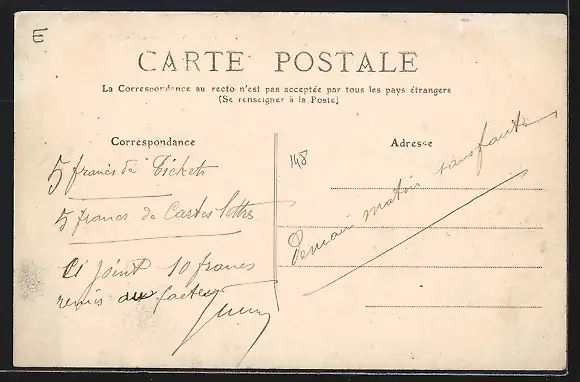 E
CARTE POSTALE
La Correspondance au recto n'est pas acceptée par tous les pays étrangers
(Se renseigner à la Poste)
Correspondance
5 francs de Tickets
5 francs de Cartes lettres
Ci joint 10 francs
remis au facteur
148
Adresse
Demain matin sans faute